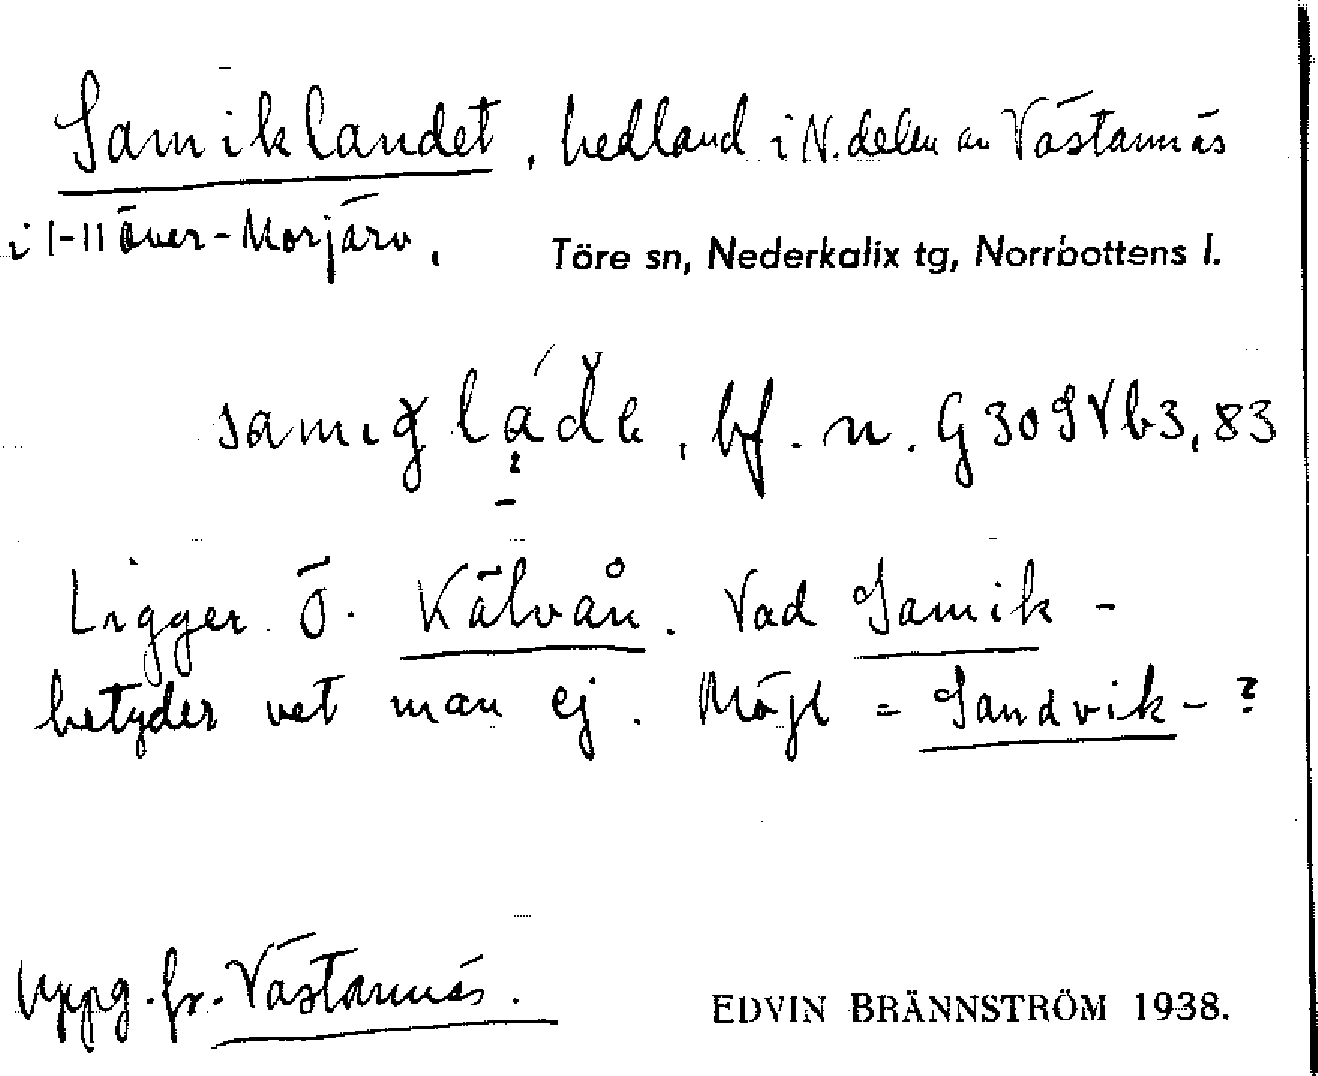 Samiklandet, hedland i N. delen av Västannäs
i 1-11 Över-Morjärv, Töre sn, Nederkalix tg, Norrbottens l.
bf. n.
Ligger Ö. Kälvån. Vad Samik-
betyder vet man ej. Möjl = Sandvik-?
Uppg. fr. Västannäs.
EDVIN BRÄNNSTRÖM 1938.